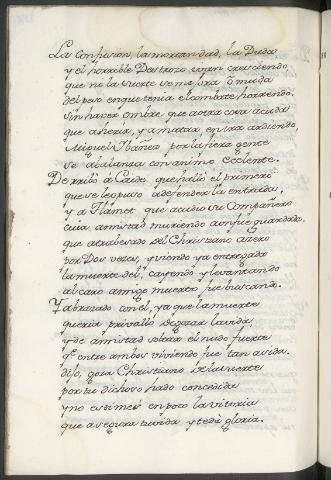 La Confusion, la mortandad, la Duda
y el horrible Destrozo ivan cresciendo,
que ni la suerte se mejora ò muda
del peso en que tenia el combate horrendo.
Sin haver ombre que a otra cosa acuda
que a herir, y a matar en ira ardiendo,
Miguel Ibañez por la fiera gente
se abalanza con animo Ecelente.
Derribò á Caide que salió el primero
que se le puso à defender la entrada,
y a Hamet que acudio su Compañero
cuia amistad muriendo aun fue guardada.
que atrabesado del Christiano azero
por Dos vezes, y viendo ya entregada
la muerte del, cayendo y levantando
al caro amigo muerto fue buscando.
Y abrazado con el, ya que la muerte
queria privallo de gozar la vida,
y de amistad soltar el nudo fuerte
qe entre ambos viviendo fue tan asida.
dijo, goza Christiano de la suerte
por tu dichoso hado concedida
y no estimes en poco la vitoria
que asegura tu vida y te dà gloria.